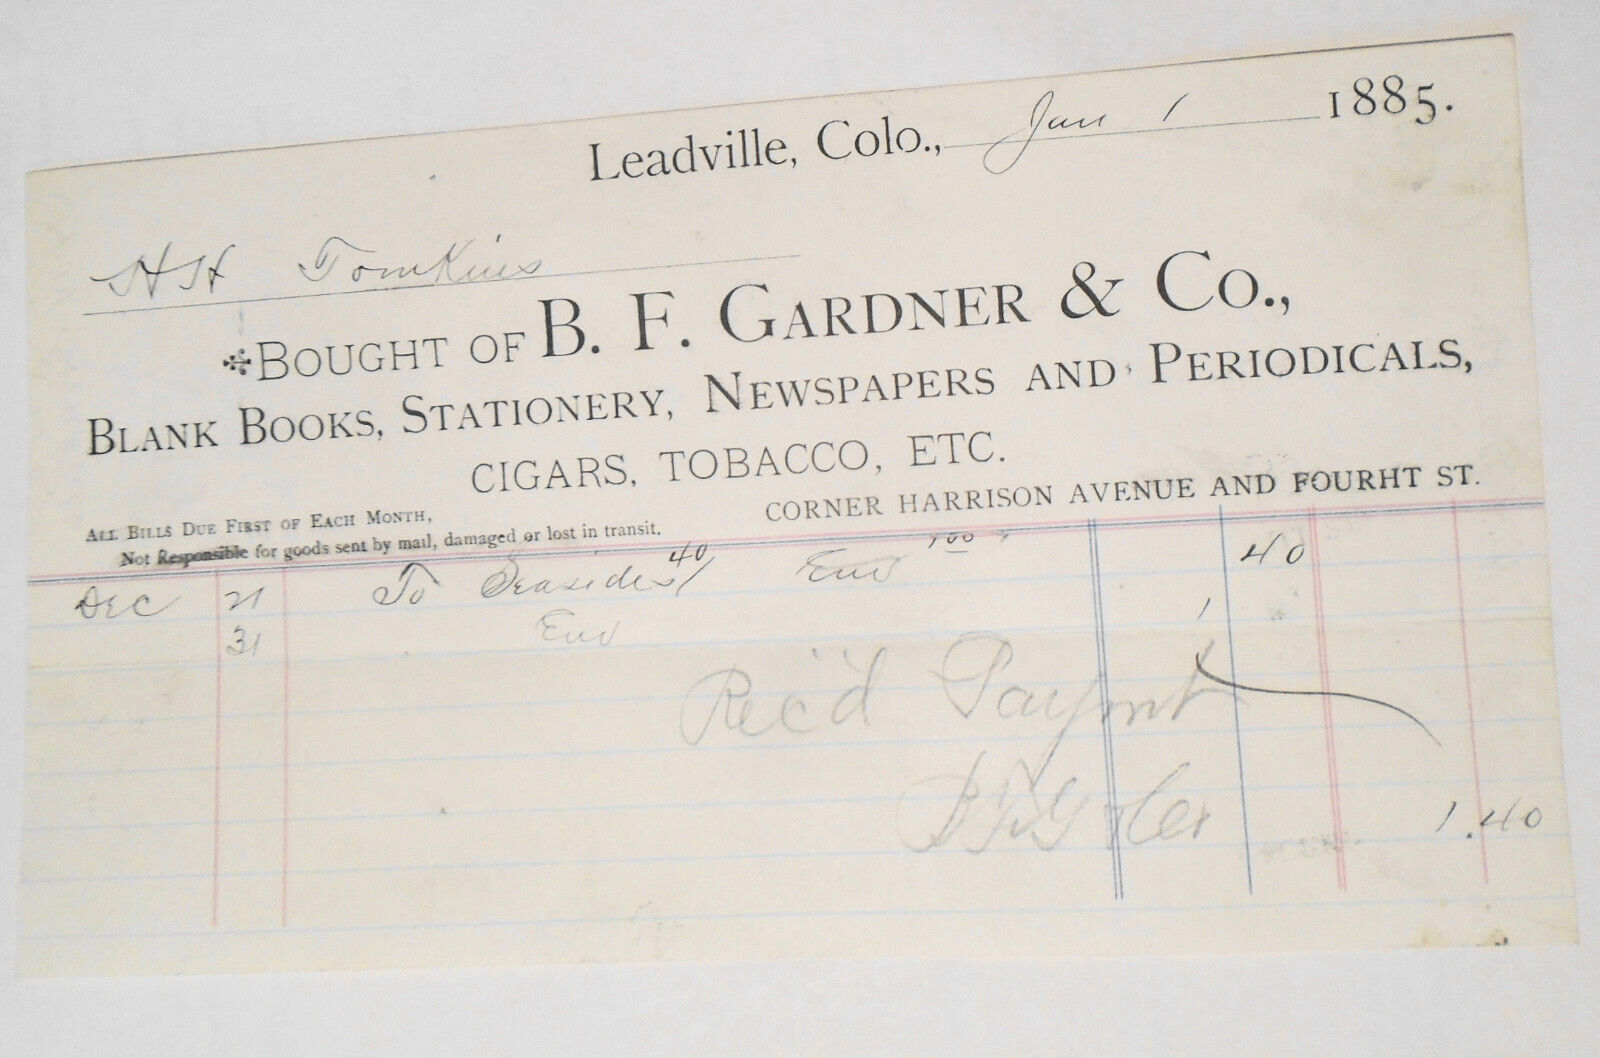 Leadville, Colo., Jan 1 1885.
HH Tomkins
BOUGHT OF B. F. GARDNER & CO.,
BLANK BOOKS, STATIONERY, NEWSPAPERS AND PERIODICALS,
CIGARS, TOBACCO, ETC.
CORNER HARRISON AVENUE AND FOURHT ST.
ALL BILLS DUE FIRST OF EACH MONTH,
Not Responsible for goods sent by mail, damaged or lost in transit.
Dec 21 To Seasides 40 Env 40
31 Env 1
Rec'd Paymt
1.40